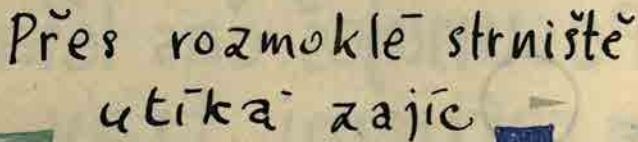 Přes rozmoklé strniště
utíká zajíc